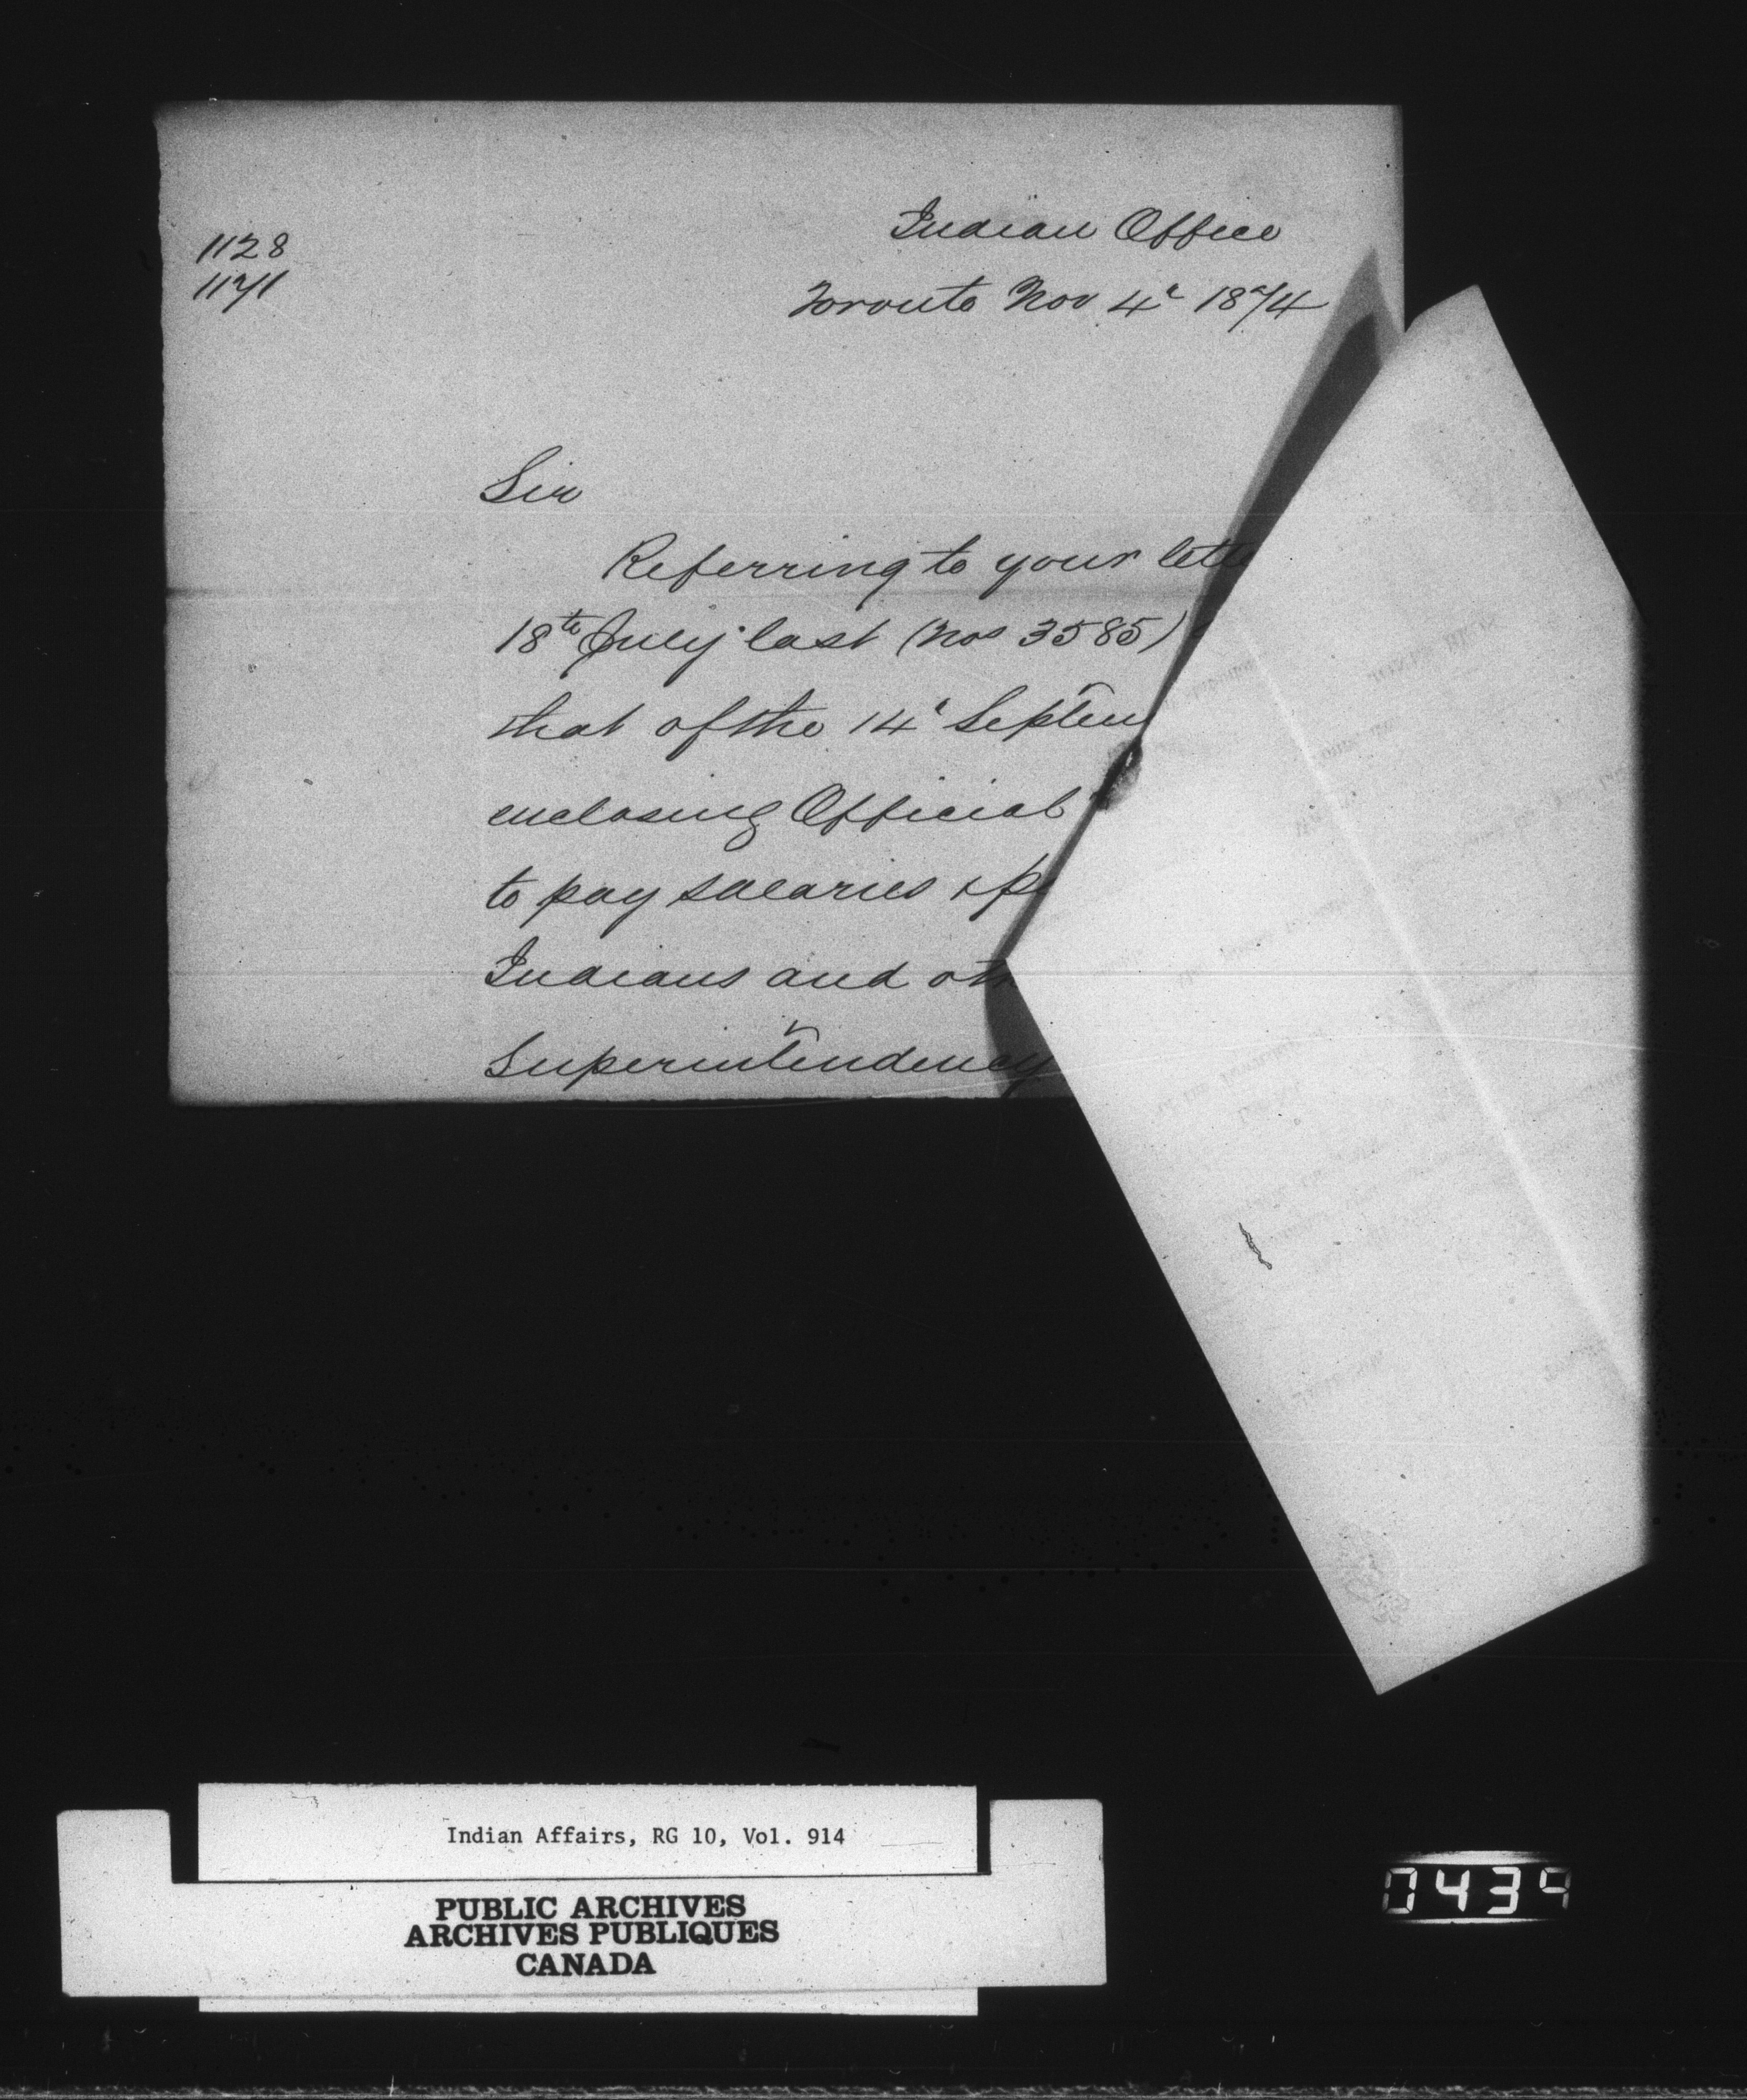 1128
1171
Indian Office
Toronto Nov 4t 1874
Sir
Referring to your lette
18th July last (Nos 3585)
that of the 14t Septem
enclosing Official
to pay salaries &
Indians and oth
Superintendency
Indian Affairs, RG 10, Vol. 914
PUBLIC ARCHIVES
ARCHIVES PUBLIQUES
CANADA
0439